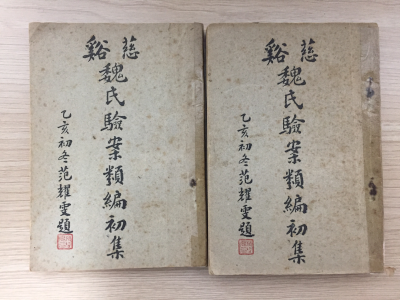 慈
谿
魏氏驗案類編初集
乙亥初冬范耀雯題
慈
谿
魏氏驗案類編初集
乙亥初冬范耀雯題